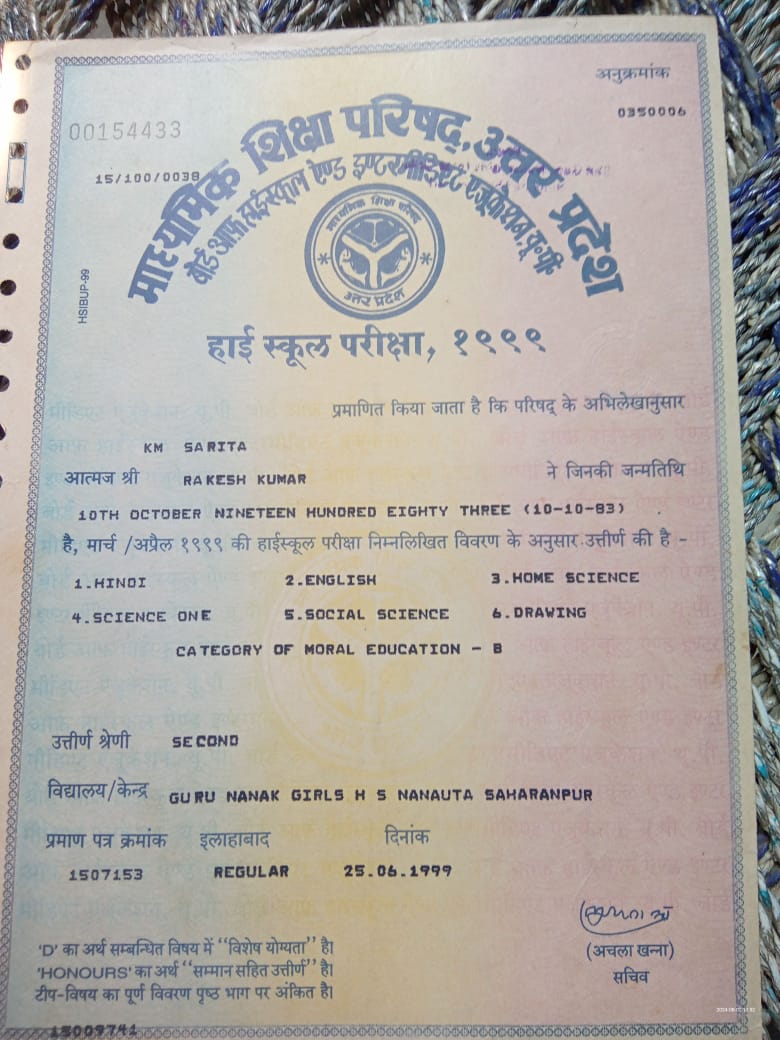 अनुक्रमांक
00154433
0350006
15/100/0038
माध्यमिक शिक्षा परिषद्, उत्तर प्रदेश
बोर्ड आफ़ हाईस्कूल ऐण्ड इण्टरमीडिएट एजूकेशन, यू॰पी॰
माध्यमिक शिक्षा परिषद
उत्तर प्रदेश
HSIBUP-99
हाई स्कूल परीक्षा, १९९९
प्रमाणित किया जाता है कि परिषद् के अभिलेखानुसार
KM SARITA
आत्मज श्री RAKESH KUMAR ने जिनकी जन्मतिथि
10TH OCTOBER NINETEEN HUNDRED EIGHTY THREE (10-10-83) .
है, मार्च /अप्रैल १९९९ की हाईस्कूल परीक्षा निम्नलिखित विवरण के अनुसार उत्तीर्ण की है -
1.HINDI 2.ENGLISH 3.HOME SCIENCE
4.SCIENCE ONE 5.SOCIAL SCIENCE 6.DRAWING
CATEGORY OF MORAL EDUCATION - B
उत्तीर्ण श्रेणी SECOND
विद्यालय/केन्द्र GURU NANAK GIRLS H S NANAUTA SAHARANPUR
प्रमाण पत्र क्रमांक इलाहाबाद दिनांक
1507153 REGULAR 25.06.1999
'D' का अर्थ सम्बन्धित विषय में "विशेष योग्यता" है।
(अचला खन्ना)
'HONOURS' का अर्थ "सम्मान सहित उत्तीर्ण" है।
सचिव
टीप-विषय का पूर्ण विवरण पृष्ठ भाग पर अंकित है।
15009741